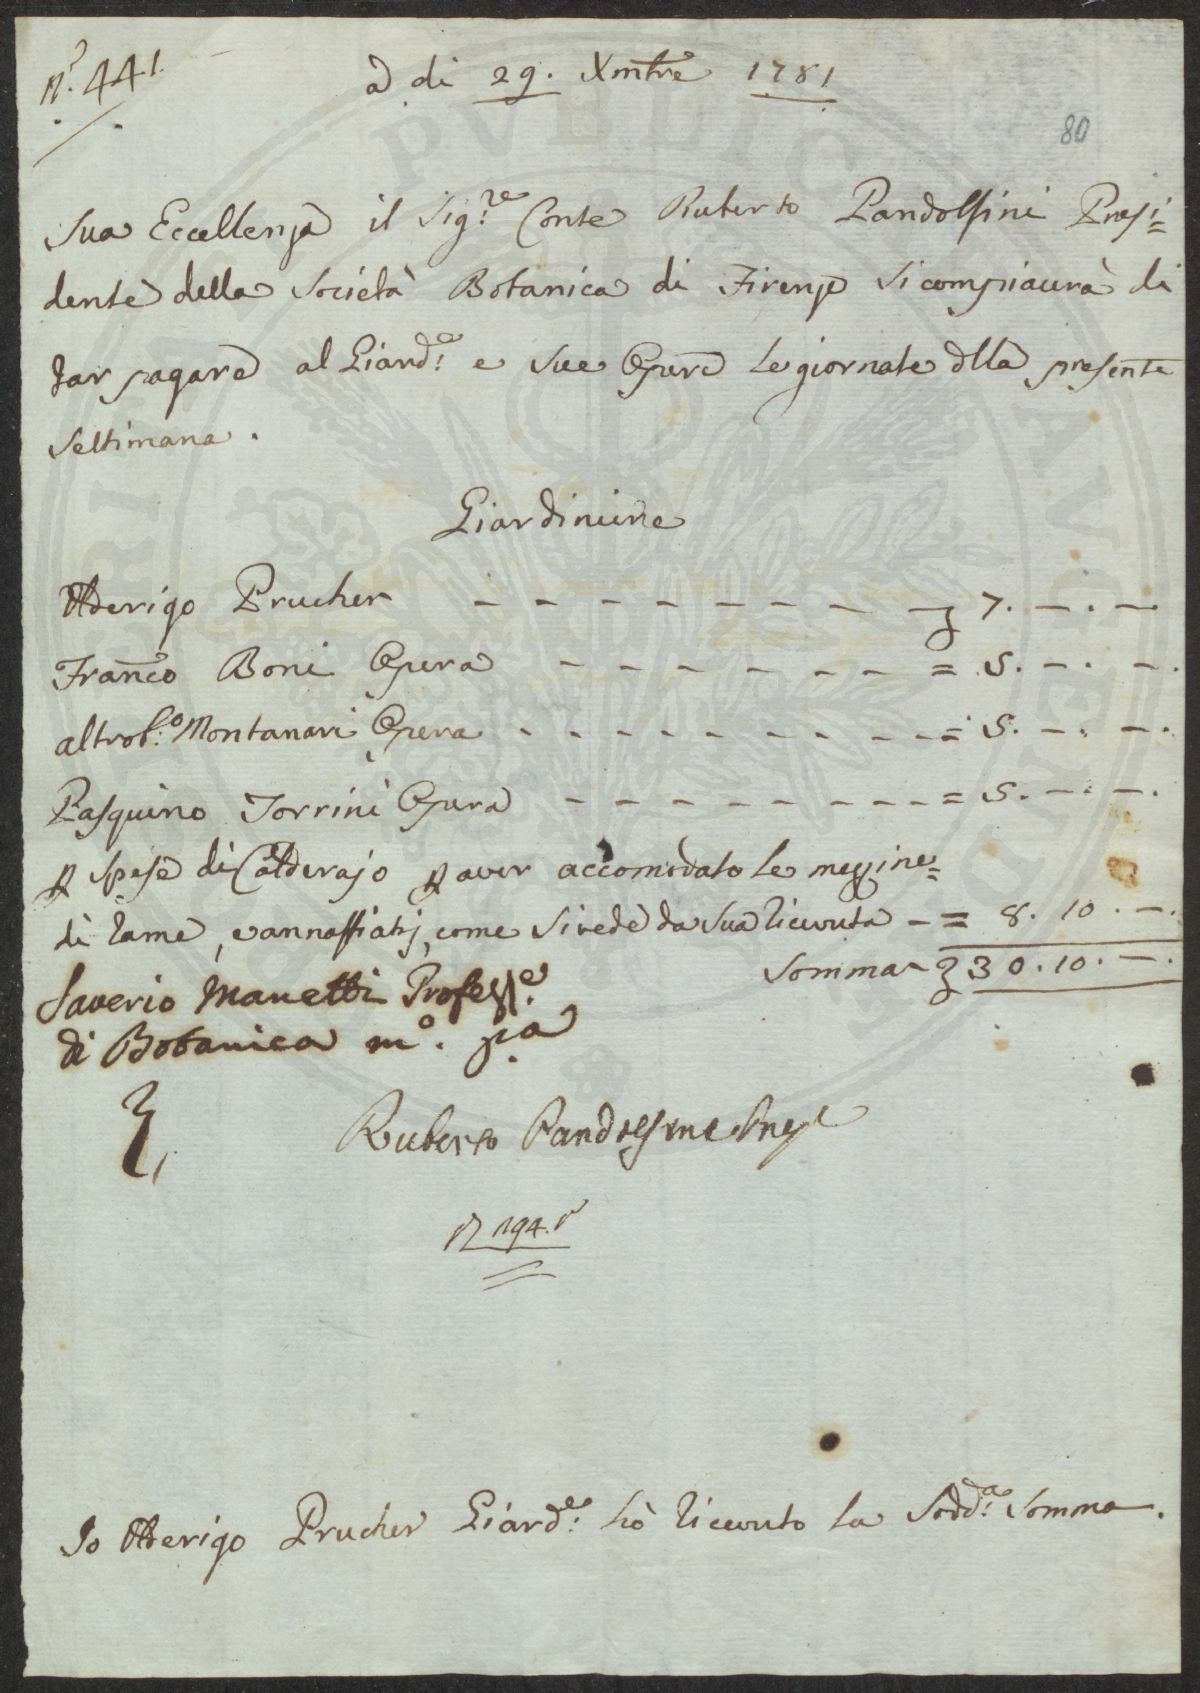 N.° 441.
a di 29. Xmbre 1781
80
Sua Eccellenza il Sig.re Conte Ruberto Pandolfini Presi=
dente della Società Botanica di Firenze si compiacerà di
far pagare al Giard.e e sue Opere le giornate dlla presente
Settimana.
Giardiniere
Aderigo Prucher - - - - - - - - 7. -. -.
Franco Boni Opera - - - - - - = 5. -. -.
altrob.° Montanari Opera - - - - - - - - = 5. -. -.
Pasquino Torrini Opera - - - - - - - = 5. -. -.
p spese di Calderajo p aver accomodato le mezzine=
di rame, e annaffiatj, come si vede da sua ricevuta - = 8. 10. -.
Somma - 30. 10. -.
Saverio Manetti Profess.e
di Botanica m.° pa
Ruberto Pandolfini Pres.e
N 194.
Io Aderigo Prucher Giard.e hò ricevuto la Sodd.a Somma.
PVBLICA